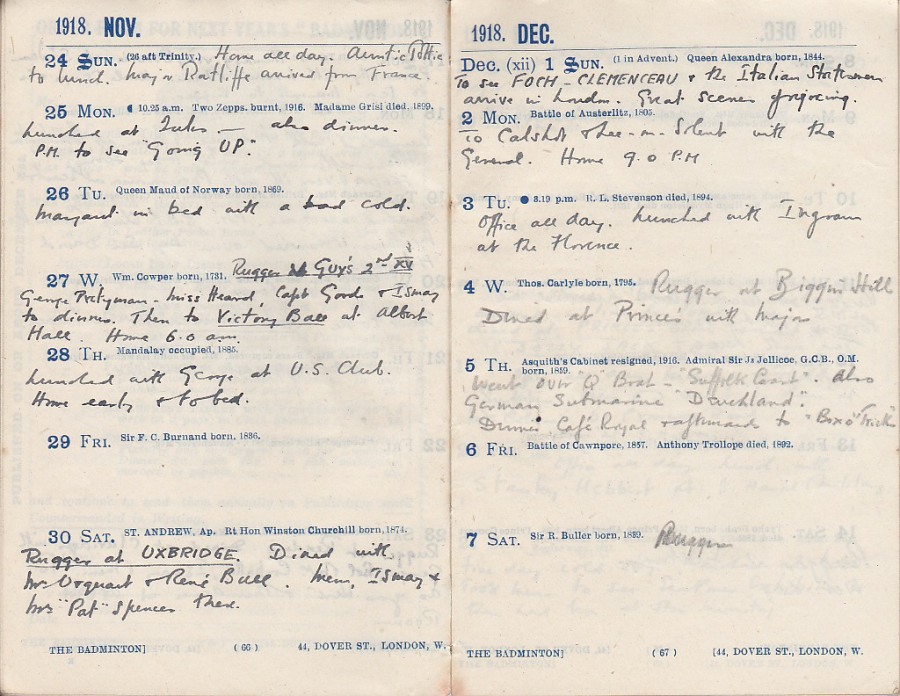 1918. NOV.
24 SUN. (26 aft Trinity.) Home all day. Auntie Pottie
to lunch. Major Ratliffe arrived from France.
25 MON. 10.25 a.m. Two Zepps. burnt, 1916. Madame Grisi died, 1899.
Lunched at – also dinner.
P.M. to see "Going UP".
26 TU. Queen Maud of Norway born, 1869.
Margaret in bed with a bad cold.
27 W. Wm. Cowper born, 1731. Rugger Guy's 2nd XV
George Pretyman – Miss Heard, Capt Gordo & Ismay
to dinner. Then to Victory Ball at Albert
Hall. Home 6.0 am.
28 TH. Mandalay occupied, 1885.
Lunched with George at U.S. Club.
Home early & to bed.
29 FRI. Sir F. C. Burnand born, 1836.
30 SAT. ST. ANDREW, Ap. Rt Hon Winston Churchill born, 1874.
Rugger at UXBRIDGE. Dined with
Mr Urquart & René Bull. Mem, Ismay &
Mrs "Pat" Spencer there.
THE BADMINTON] (66) 44, DOVER ST., LONDON, W.
1918. DEC.
Dec. (xii) 1 SUN. (1 in Advent.) Queen Alexandra born, 1844.
To see FOCH – CLEMENCEAU & the Italian Statesman
arrive in London. Great scenes of rejoicing.
2 MON. Battle of Austerlitz, 1805.
To Calshot & Lee-on-Solent with the
General. Home 9.0 P.M
3 TU. 8.19 p.m. R. L. Stevenson died, 1894.
Office all day. Lunched with Ingram
at the Florence.
4 W. Thos. Carlyle born, 1795. Rugger at Biggin Hill
Dined at Princes with Major
5 TH. Asquith's Cabinet resigned, 1916. Admiral Sir Js Jellicoe, G.C.B., O.M.
born, 1859.
Went over "Q" Boat – "Suffolk Coast". Also
German Submarine "Deuchland".
Dinner Café Royal & afterwards to "Box o' Tricks"
6 FRI. Battle of Cawnpore, 1857. Anthony Trollope died, 1892.
7 SAT. Sir R. Buller born, 1839. Rugger
THE BADMINTON] (67) [44, DOVER ST., LONDON, W.